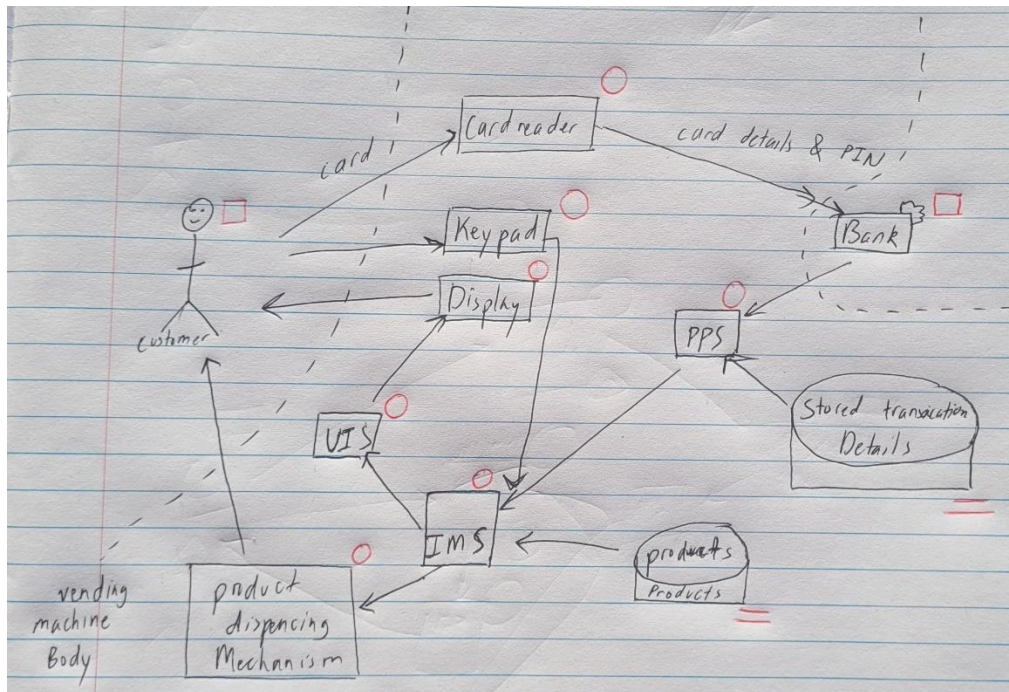 Cardreader
card
card details & PIN
Keypad
Bank
Display
customer
PPS
Stored transication
Details
UIS
IMS
products
Products
vending
machine
Body
product
dispencing
Mechanism